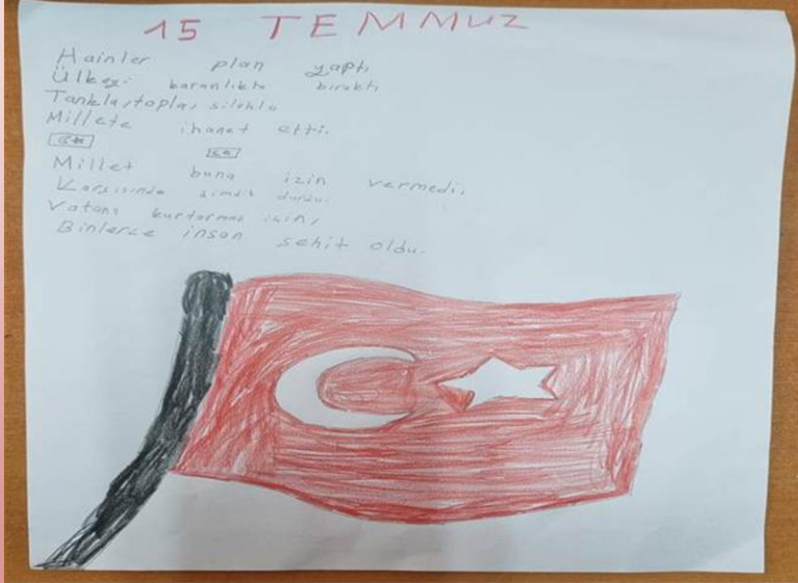 15 TEMMUZ
Hainler plan yaptı
Ülkeyi karanlıkta bıraktı
Tankla, topla, silahla
Millete ihanet etti.
Millet buna izin vermedi,
Karşısında dimdik durdu.
Vatanı kurtarmak için,
Binlerce insan şehit oldu.